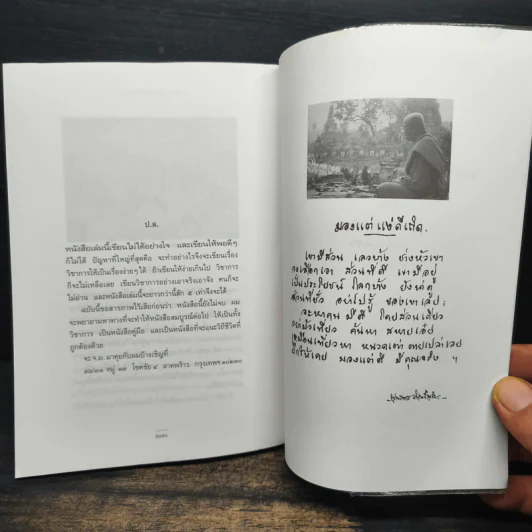 ป.ล.
หนังสือเล่มนี้เขียนไม่ได้อย่างใจ และเขียนให้พอดีๆ
ก็ไม่ได้ ปัญหาที่ใหญ่ที่สุดคือ จะทำอย่างไรจึงจะเขียนเรื่อง
วิชาการให้เป็นเรื่องง่ายๆ ได้ ถ้าเขียนให้ง่ายเกินไป วิชาการ
ก็จะไม่เหลือเลย เขียนวิชาการอย่างเอาจริงเอาจัง คนก็จะ
ไม่อ่าน และหนังสือเล่มนี้จะยาวกว่านี้สัก ๕ เท่าจึงจะได้
ฉบับนี้ขอสารภาพไว้เสียก่อนว่า หนังสือนี้ยังไม่จบ ผม
จะพยายามหาทางที่จะทำให้หนังสือสมบูรณ์ต่อไป ให้เป็นทั้ง
วิชาการ เป็นหนังสือคู่มือ และเป็นหนังสือที่จะแนะวิถีชีวิตที่
ถูกต้องด้วย
จะ จ.ม. มาคุยกับผมบ้างเชิญที่
หมู่ ๑๑ โชคชัย ๔ ลาดพร้าว กรุงเทพฯ ๑๐๒๓๐
มองแต่แง่ดีเถิด
เขามีส่วน เลวบ้าง ช่างหัวเขา
จงเลือกเอา ส่วนที่ดี เขามีอยู่
เป็นประโยชน์ โลกบ้าง ยังน่าดู
ส่วนที่ชั่ว อย่าไปรู้ ของเขาเลย
จะหาคน มีดี โดยส่วนเดียว
อย่ามัวเที่ยว ค้นหา สหายเอ๋ย
เหมือนเที่ยวหา หนวดเต่า ตายเปล่าเลย
ฝึกให้เคย มองแต่ดี มีคุณจริง ฯ